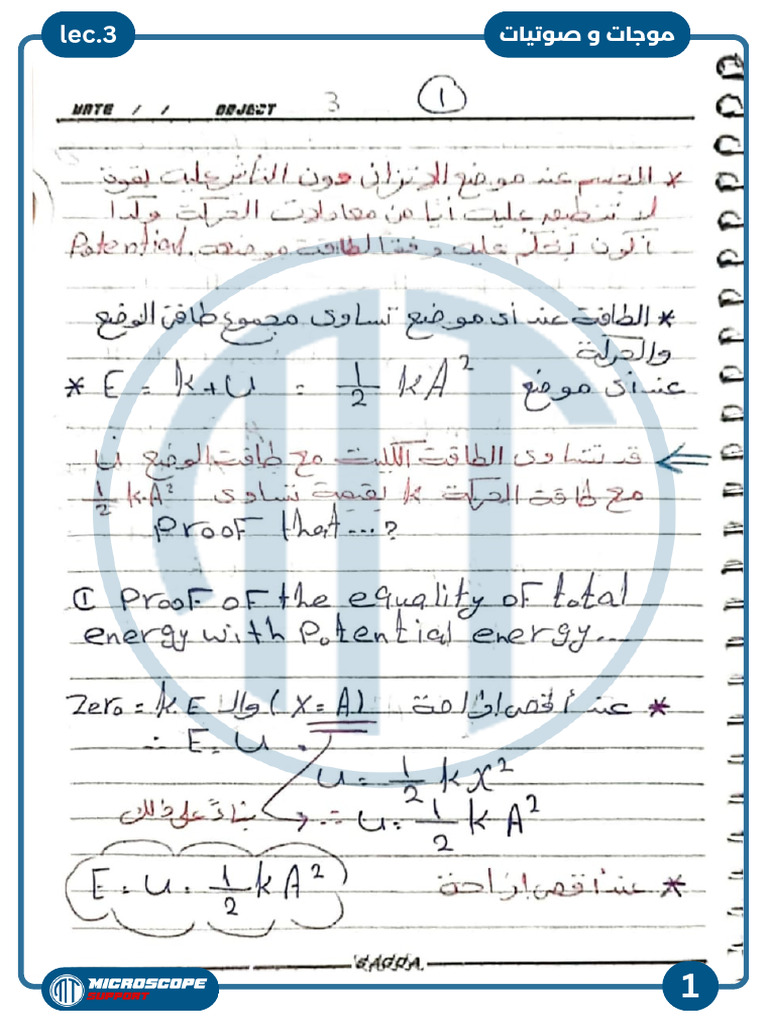 lec.3
موجات و صوتيات
DATE / / OBJECT 3 ①
* الجسم عند موضع الاتزان دون التأثير عليه بقوة
لا تنطبق عليه أيا من معادلات الحركة وكدا
أكون بحكم عليه وفقا لطاقة موضعه. Potential
* الطاقة عند أى موضع تساوى مجموع طاقة الوضع
والحركة
* E = k + U = 1/2 kA² عند أى موضع
قد تتساوى الطاقة الكلية مع طاقة الوضع U
مع طاقة الحركة k بقيمة تساوى 1/2 kA²
Proof that...?
① Proof of the equality of total
energy with Potential energy...
* عند أقصى إزاحة (X = A) والـ KE = Zero
∴ E = U.
U = 1/2 k x²
بناءً على ذلك ∴ U = 1/2 k A²
* عند أقصى إزاحة E = U = 1/2 kA²
MICROSCOPE
SUPPORT
1